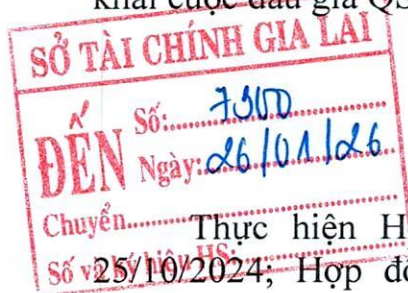 khai cuộc đấu giá QS
SỞ TÀI CHÍNH GIA LAI
ĐẾN
Số: 7300
Ngày: 26/01/26
Chuyển
Thực hiện H
Số và ký hiệu HS:
25/10/2024; Hợp đồ